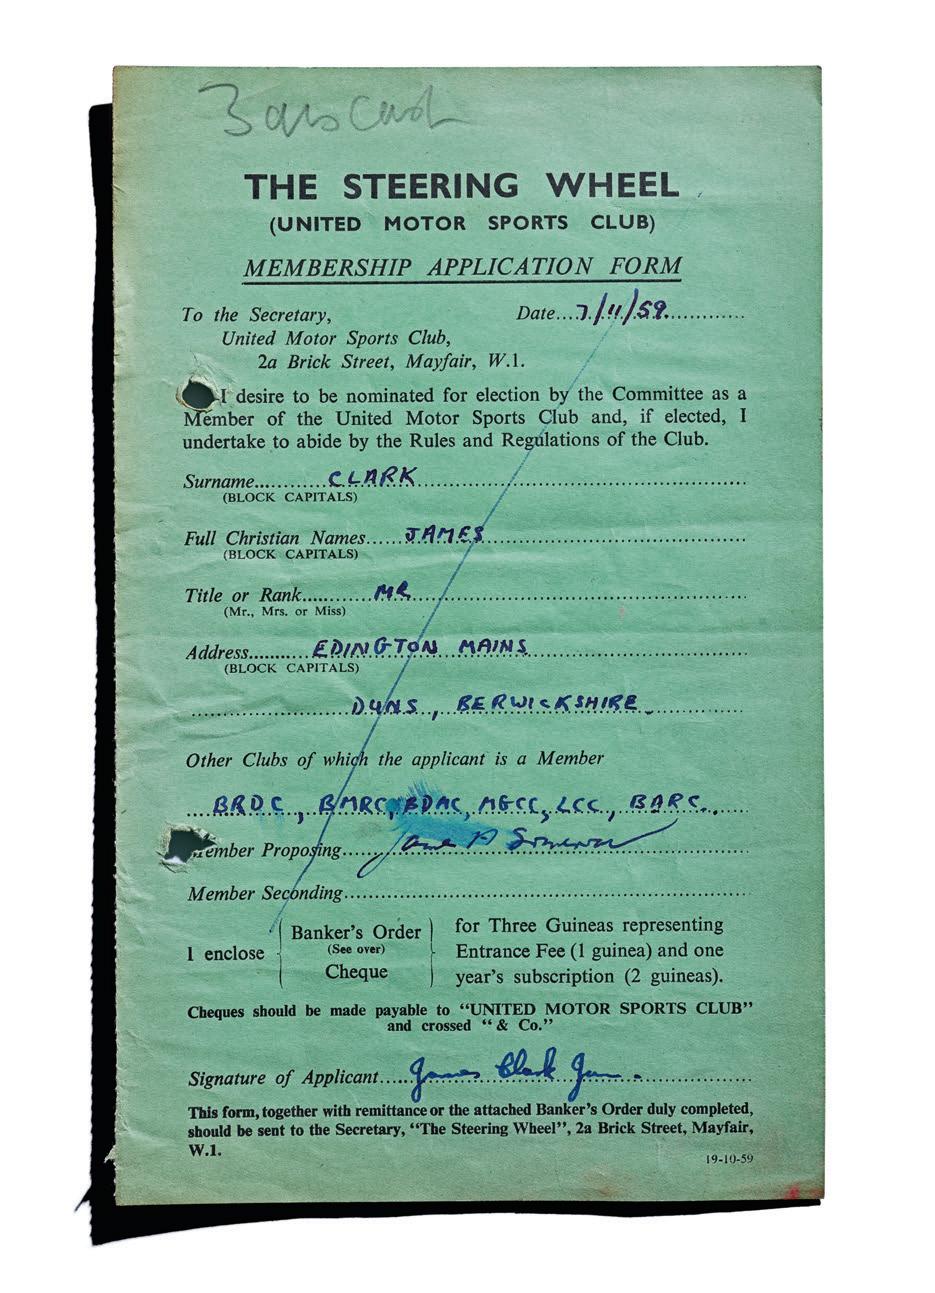 3 gns Cash
THE STEERING WHEEL
(UNITED MOTOR SPORTS CLUB)
MEMBERSHIP APPLICATION FORM
To the Secretary, Date....7/11/59..............
United Motor Sports Club,
2a Brick Street, Mayfair, W.1.
I desire to be nominated for election by the Committee as a
Member of the United Motor Sports Club and, if elected, I
undertake to abide by the Rules and Regulations of the Club.
Surname............CLARK
(BLOCK CAPITALS)
Full Christian Names......JAMES
(BLOCK CAPITALS)
Title or Rank............MR
(Mr., Mrs. or Miss)
Address..........EDINGTON MAINS
(BLOCK CAPITALS)
DUNS, BERWICKSHIRE
Other Clubs of which the applicant is a Member
BRDC, BMRC, BDMC, MGCC, LCC, BARC.
Member Proposing....
Member Seconding....
I enclose { Banker's Order (See over) Cheque } for Three Guineas representing
Entrance Fee (1 guinea) and one
year's subscription (2 guineas).
Cheques should be made payable to "UNITED MOTOR SPORTS CLUB"
and crossed "& Co."
Signature of Applicant.....James Clark Jun.
This form, together with remittance or the attached Banker's Order duly completed,
should be sent to the Secretary, "The Steering Wheel", 2a Brick Street, Mayfair,
W.1.
19-10-59